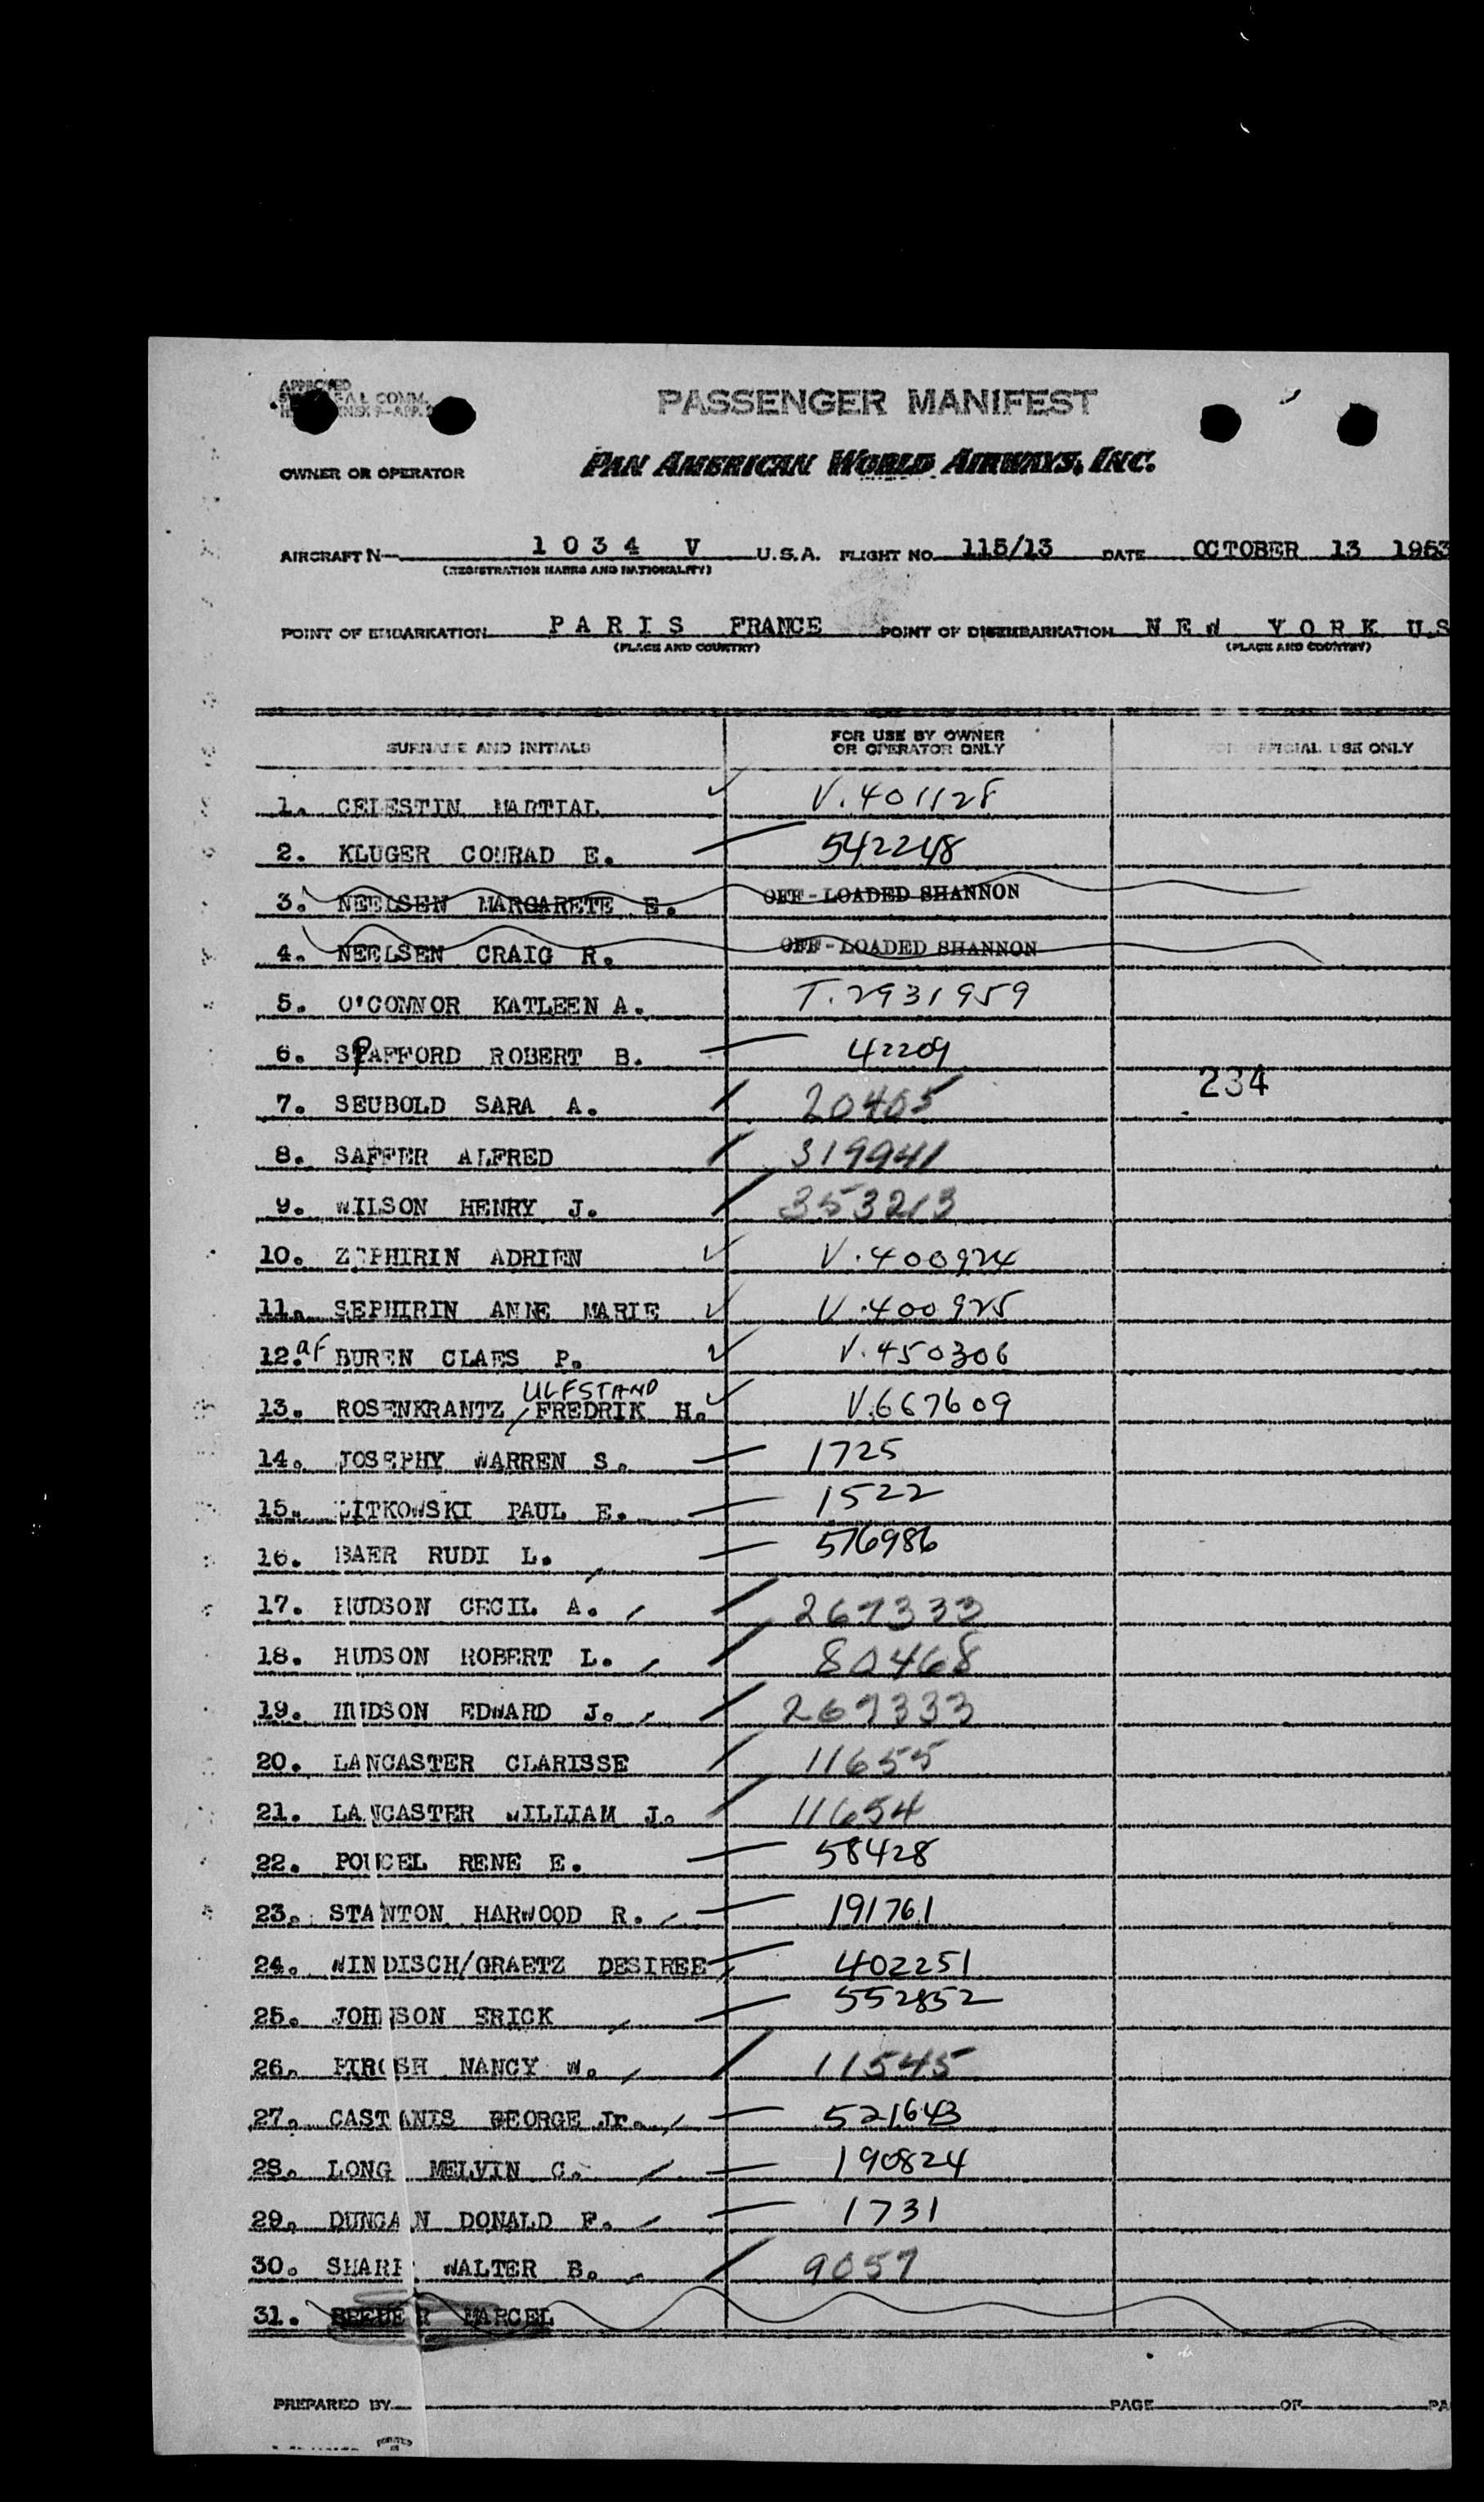 APPROVED
COMM.
PASSENGER MANIFEST
OWNER OR OPERATOR PAN AMERICAN WORLD AIRWAYS, INC.
AIRCRAFT N 1034 V U.S.A. FLIGHT NO. 115/13 DATE OCTOBER 13 1953
(REGISTRATION MARKS AND NATIONALITY)
POINT OF EMBARKATION PARIS FRANCE POINT OF DISEMBARKATION NEW YORK U.S
(PLACE AND COUNTRY) (PLACE AND COUNTRY)
SURNAME AND INITIALS FOR USE BY OWNER OR OPERATOR ONLY FOR OFFICIAL USE ONLY
1. CELESTIN MARTIAL V.401128
2. KLUGER CONRAD E. 542248
3. NEELSEN MARGARETE E. OFF-LOADED SHANNON
4. NEELSEN CRAIG R. OFF-LOADED SHANNON
5. O'CONNOR KATLEEN A. T.2931959
6. SPAFFORD ROBERT B. 42209
234
7. SEUBOLD SARA A. 20405
8. SAFFER ALFRED 319941
9. WILSON HENRY J. 353213
10. ZEPHIRIN ADRIEN V.400924
11. SEPHIRIN ANNE MARIE V.400925
12. af BUREN CLAES P. V.450306
ULFSTAND
13. ROSENKRANTZ/FREDRIK H. V.667609
14. JOSEPHY WARREN S. 1725
15. LITKOWSKI PAUL E. 1522
16. BAER RUDI L. 576986
17. HUDSON CECIL A. 267333
18. HUDSON ROBERT L. 80468
19. HUDSON EDWARD J. 267333
20. LANCASTER CLARISSE 11655
21. LANCASTER WILLIAM J. 11654
22. POUCEL RENE E. 58428
23. STANTON HARWOOD R. 191761
24. WINDISCH/GRAETZ DESIREE 402251
25. JOHNSON ERICK 552852
26. PIROSH NANCY W. 11545
27. CASTANIS GEORGE Jr. 521643
28. LONG MELVIN C. 190824
29. DUNCAN DONALD F. 1731
30. SHARP WALTER B. 9057
31. MARCEL
PREPARED BY PAGE OF PA